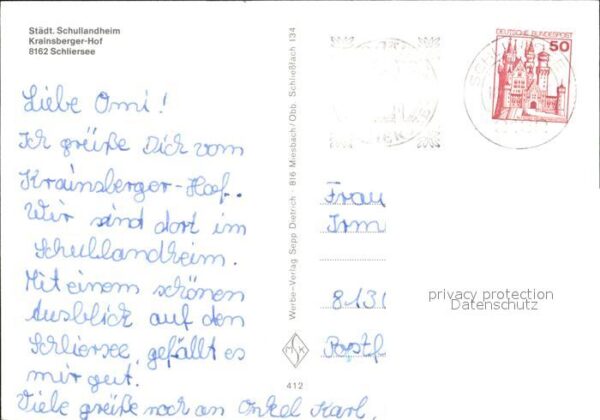 Städt. Schullandheim
Krainsberger-Hof
8162 Schliersee
Liebe Omi!
Ich grüße Dich vom
Krainsberger-Hof.
Wir sind dort im
Schullandheim.
Mit einem schönen
Ausblick auf den
Schliersee, gefällt es
mir gut.
Viele grüße noch an Onkel Karl,
Werbe-Verlag Sepp Dietrich 816 Miesbach/Obb. Schließfach 134
MSK
412
DEUTSCHE BUNDESPOST
50
Frau
Irm
8131
Postf
privacy protection
Datenschutz